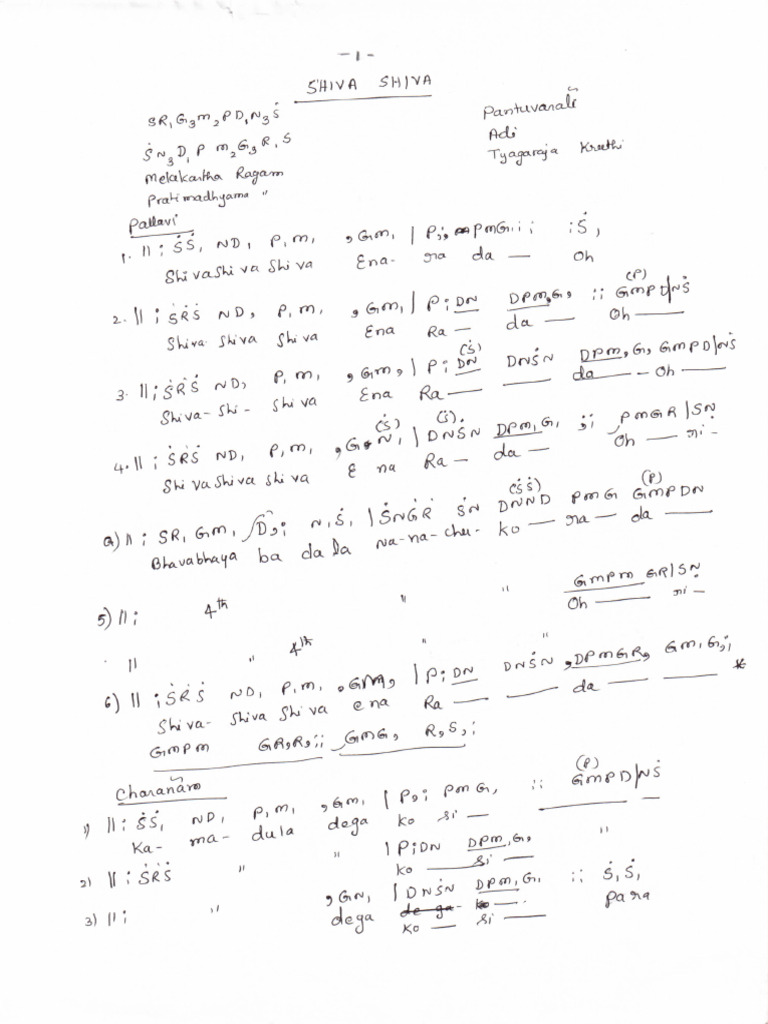 -1-
SHIVA SHIVA
SR₁G₃m₂PD₁N₃Ṡ
ṠN₃D₁P m₂G₃R₁S
Melakartha Ragam
Pratimadhyama "
Pantuvarali
Adi
Tyagaraja Kruthi
Pallavi
1. || ; ṠṠ, ND, P,m, ,Gm, | P;, PmG;; ;Ṡ,
Shivashiva shiva Ena- ra da — Oh
2. || ; ṠṘṠ ND, P,m, ,Gm,| P;DN DPm,G, ;; (P) GmPD/NṠ
Shiva shiva shiva Ena Ra — da — Oh —
3. ||; ṠṘṠ ND, P,m, ,Gm,| P; (Ṡ) DN DNṠN DPm,G, GmPD/NṠ
Shiva-Shi- shiva Ena Ra — — da — - Oh —
4. || ; ṠṘṠ ND, P,m, ,G (Ṡ) N,| (Ṡ). DNṠN DPm,G, ;; PmGR/SṆ
Shivashivashiva E na Ra — da — Oh — ni-
a) || ; SR, Gm, D,; N,Ṡ, |ṠNĠṘ ṠN (ṠṠ) DNND PmG (P) GmPDN
Bhavabhaya ba da la na-na-chu- ko — ra — da —
5) || ; 4th " " GmPm GR/SṆ
Oh — ni —
|| " 4th " "
6) || ; ṠṘṠ ND, P,m, ,Gm, | P;DN DNṠN ,DPmGR, Gm,G,; *
Shiva- shiva shiva ena Ra — — da — —
GmPm GR,R,;; GmG, R,S,;
Charanam
1) || ; ṠṠ, ND, P,m, ,Gm, | P,; PmG, ;; (P) GmPD/NṠ
Ka- ma- dula dega ko si — — —
2) || ; ṠṘṠ " " | P;DN DPm,G, "
ko — si —
3) || ; " ,GN, | DNṠN DPm,G, ;; Ṡ,Ṡ,
dega de ga- ko — para
ko — si —